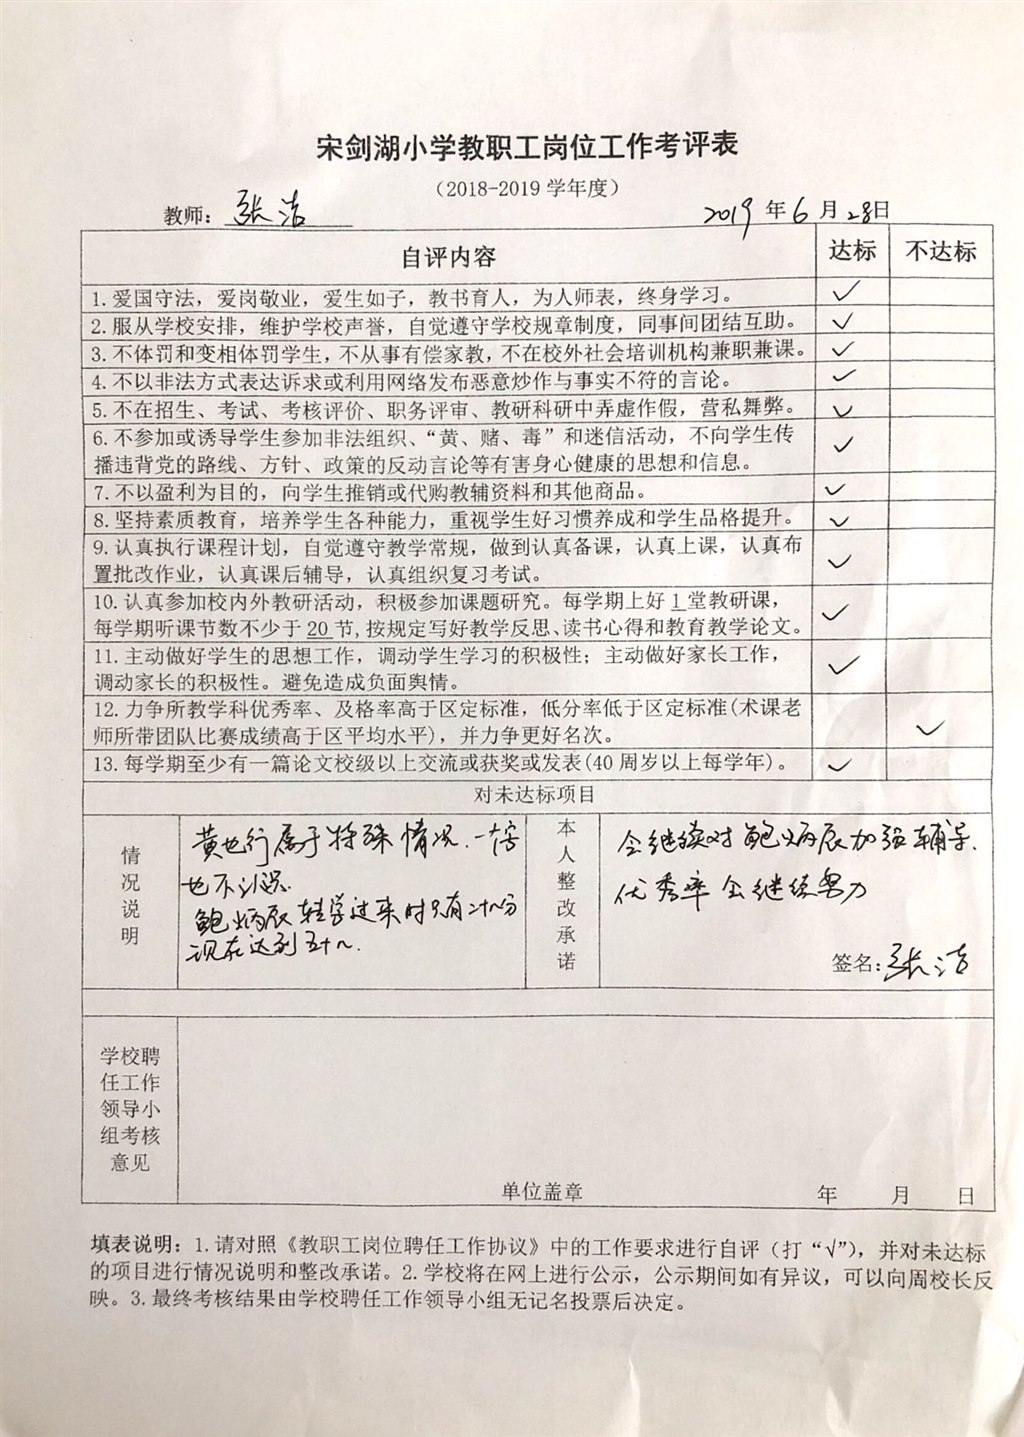 宋剑湖小学教职工岗位工作考评表
（2018-2019 学年度）
教师：张洁 2019 年 6 月 28日
自评内容 达标 不达标
1.爱国守法，爱岗敬业，爱生如子，教书育人，为人师表，终身学习。 ✓
2.服从学校安排，维护学校声誉，自觉遵守学校规章制度，同事间团结互助。 ✓
3.不体罚和变相体罚学生，不从事有偿家教，不在校外社会培训机构兼职兼课。 ✓
4.不以非法方式表达诉求或利用网络发布恶意炒作与事实不符的言论。 ✓
5.不在招生、考试、考核评价、职务评审、教研科研中弄虚作假，营私舞弊。 ✓
6.不参加或诱导学生参加非法组织、“黄、赌、毒”和迷信活动，不向学生传
播违背党的路线、方针、政策的反动言论等有害身心健康的思想和信息。 ✓
7.不以盈利为目的，向学生推销或代购教辅资料和其他商品。 ✓
8.坚持素质教育，培养学生各种能力，重视学生好习惯养成和学生品格提升。 ✓
9.认真执行课程计划，自觉遵守教学常规，做到认真备课，认真上课，认真布
置批改作业，认真课后辅导，认真组织复习考试。 ✓
10.认真参加校内外教研活动，积极参加课题研究。每学期上好 1 堂教研课，
每学期听课节数不少于 20 节,按规定写好教学反思、读书心得和教育教学论文。 ✓
11.主动做好学生的思想工作，调动学生学习的积极性；主动做好家长工作，
调动家长的积极性。避免造成负面舆情。 ✓
12.力争所教学科优秀率、及格率高于区定标准，低分率低于区定标准(术课老
师所带团队比赛成绩高于区平均水平)，并力争更好名次。 ✓
13.每学期至少有一篇论文校级以上交流或获奖或发表(40 周岁以上每学年)。 ✓
对未达标项目
情况说明
黄也行属于特殊情况.一字
也不认识.
鲍炳辰转学过来时只有二十几分
现在达到五十几.
本人整改承诺
会继续对鲍炳辰加强辅导.
优秀率会继续努力
签名:张洁
学校聘
任工作
领导小
组考核
意见
单位盖章 年 月 日
填表说明：1.请对照《教职工岗位聘任工作协议》中的工作要求进行自评（打“√”），并对未达标
的项目进行情况说明和整改承诺。2.学校将在网上进行公示，公示期间如有异议，可以向周校长反
映。3.最终考核结果由学校聘任工作领导小组无记名投票后决定。